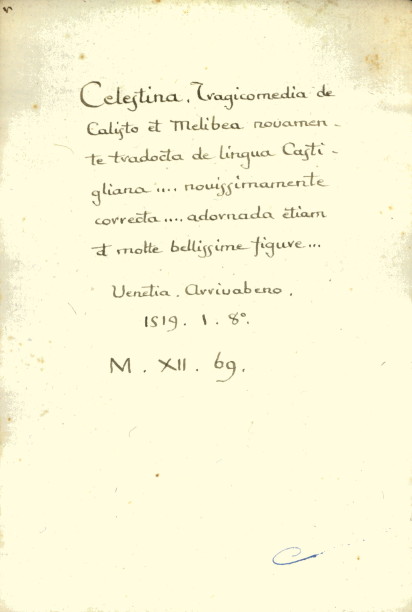 Celestina. Tragicomedia de
Calisto et Melibea novamen-
te tradocta de lingua Casti-
gliana .... novissimamente
correcta .... adornada etiam
d motte bellissime figure...
Venetia. Arrivabeno.
1519. 1. 8º.
M. XII. 69.